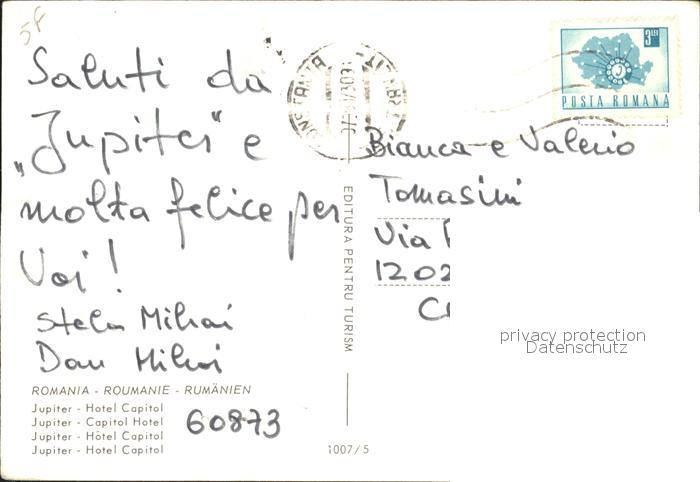 5f
Saluti da
„Jupiter“ e
molta felice per
Voi!
Stela Mihai
Dan Mihai
ROMANIA - ROUMANIE - RUMÄNIEN
Jupiter - Hotel Capitol
Jupiter - Capitol Hotel
Jupiter - Hôtel Capitol
Jupiter - Hotel Capitol
60873
EDITURA PENTRU TURISM
1007/5
3 LEI
POSTA ROMANA
Bianca e Valerio
Tomasini
Via
1202
privacy protection
Datenschutz